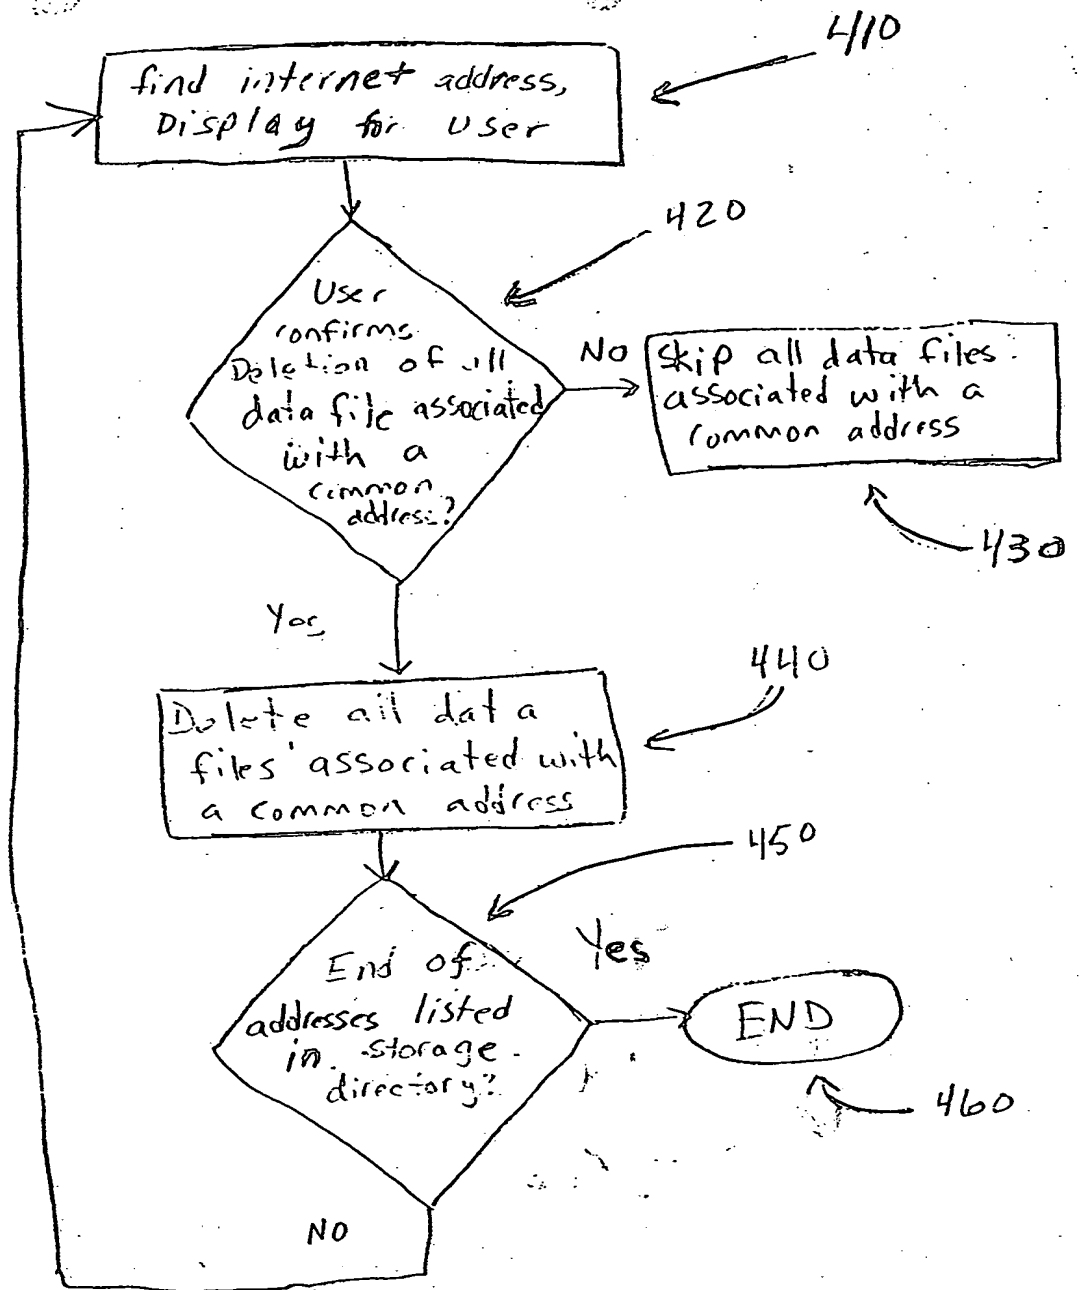 410
find internet address,
Display for User
420
User
confirms
Deletion of all
data file associated
with a
common
address?
NO
Skip all data files
associated with a
common address
430
Yes
440
Delete all data
files associated with
a common address
450
End of
addresses listed
in storage
directory?
Yes
END
460
NO